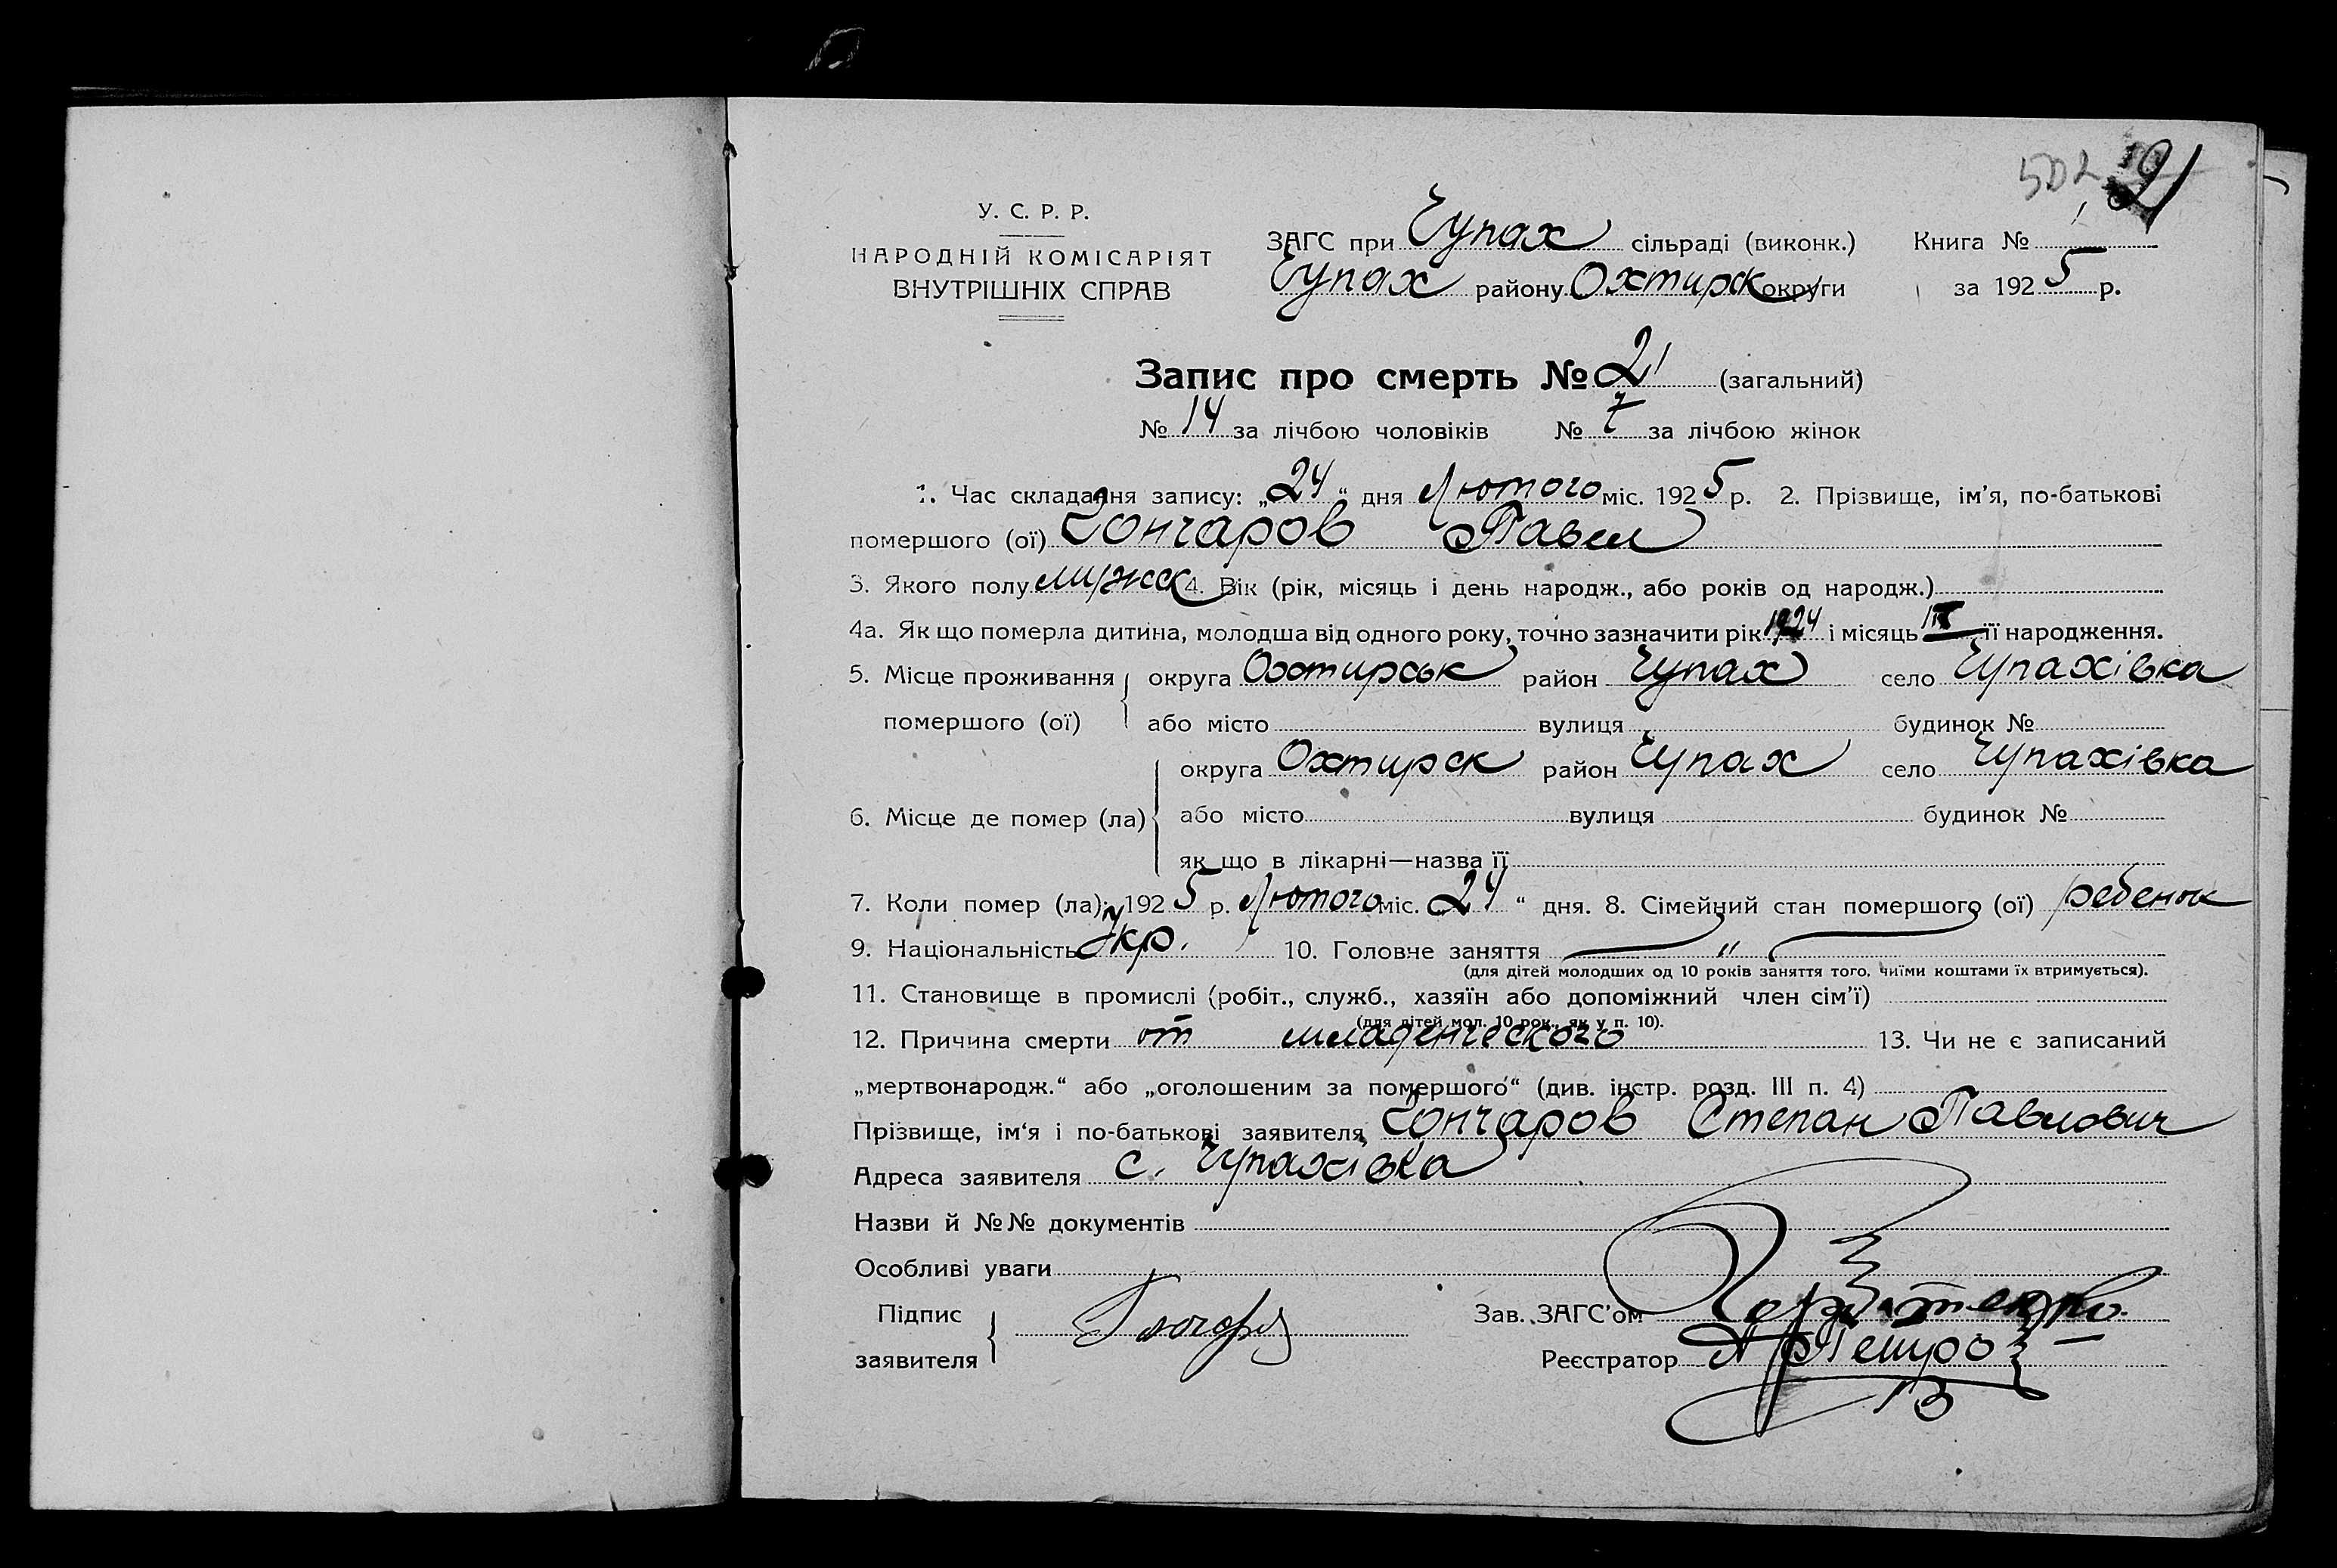 502 21
У. С. Р. Р.
НАРОДНІЙ КОМІСАРІЯТ
ВНУТРІШНІХ СПРАВ
ЗАГС при Чупах сільраді (виконк.) Книга №
Чупах району Охтирск округи за 1925 р.
Запис про смерть № 21 (загальний)
№ 14 за лічбою чоловіків № 7 за лічбою жінок
1. Час складання запису: „24“ дня Лютого міс. 1925 р. 2. Прізвище, ім’я, по-батькові
помершого (ої) Гончаров Павел
3. Якого полу мужск 4. Вік (рік, місяць і день народж., або років од народж.)
4а. Як що померла дитина, молодша від одного року, точно зазначити рік 1924 і місяць її народження.
5. Місце проживання округа Охтирськ район Чупах село Чупахівка
помершого (ої) або місто вулиця будинок №
округа Охтирск район Чупах село Чупахівка
6. Місце де помер (ла) або місто вулиця будинок №
як що в лікарні—назва її
7. Коли помер (ла): 1925 р. Лютого міс. „24“ дня. 8. Сімейний стан помершого (ої) ребенок
9. Національність Укр. 10. Головне заняття "
(для дітей молодших од 10 років заняття того, чиїми коштами їх втримується).
11. Становище в промислі (робіт., служб., хазяїн або допоміжний член сім’ї)
(для дітей мол. 10 рок., як у п. 10).
12. Причина смерти от младенческого 13. Чи не є записаний
„мертвонародж.“ або „оголошеним за помершого“ (див. інстр. розд. III п. 4)
Прізвище, ім‘я і по-батькові заявителя Гончаров Степан Павлович
Адреса заявителя с. Чупахівка
Назви й №№ документів
Особливі уваги
Підпис Зав. ЗАГС’ом
заявителя Реєстратор